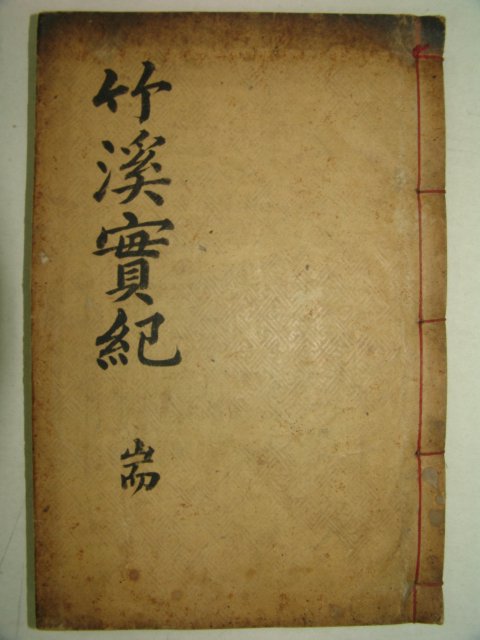 竹溪實紀
耑